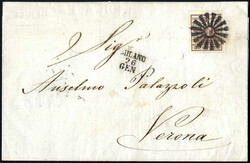 Sig.r
MILANO
26
GEN
Anselmo Palazzoli
Verona